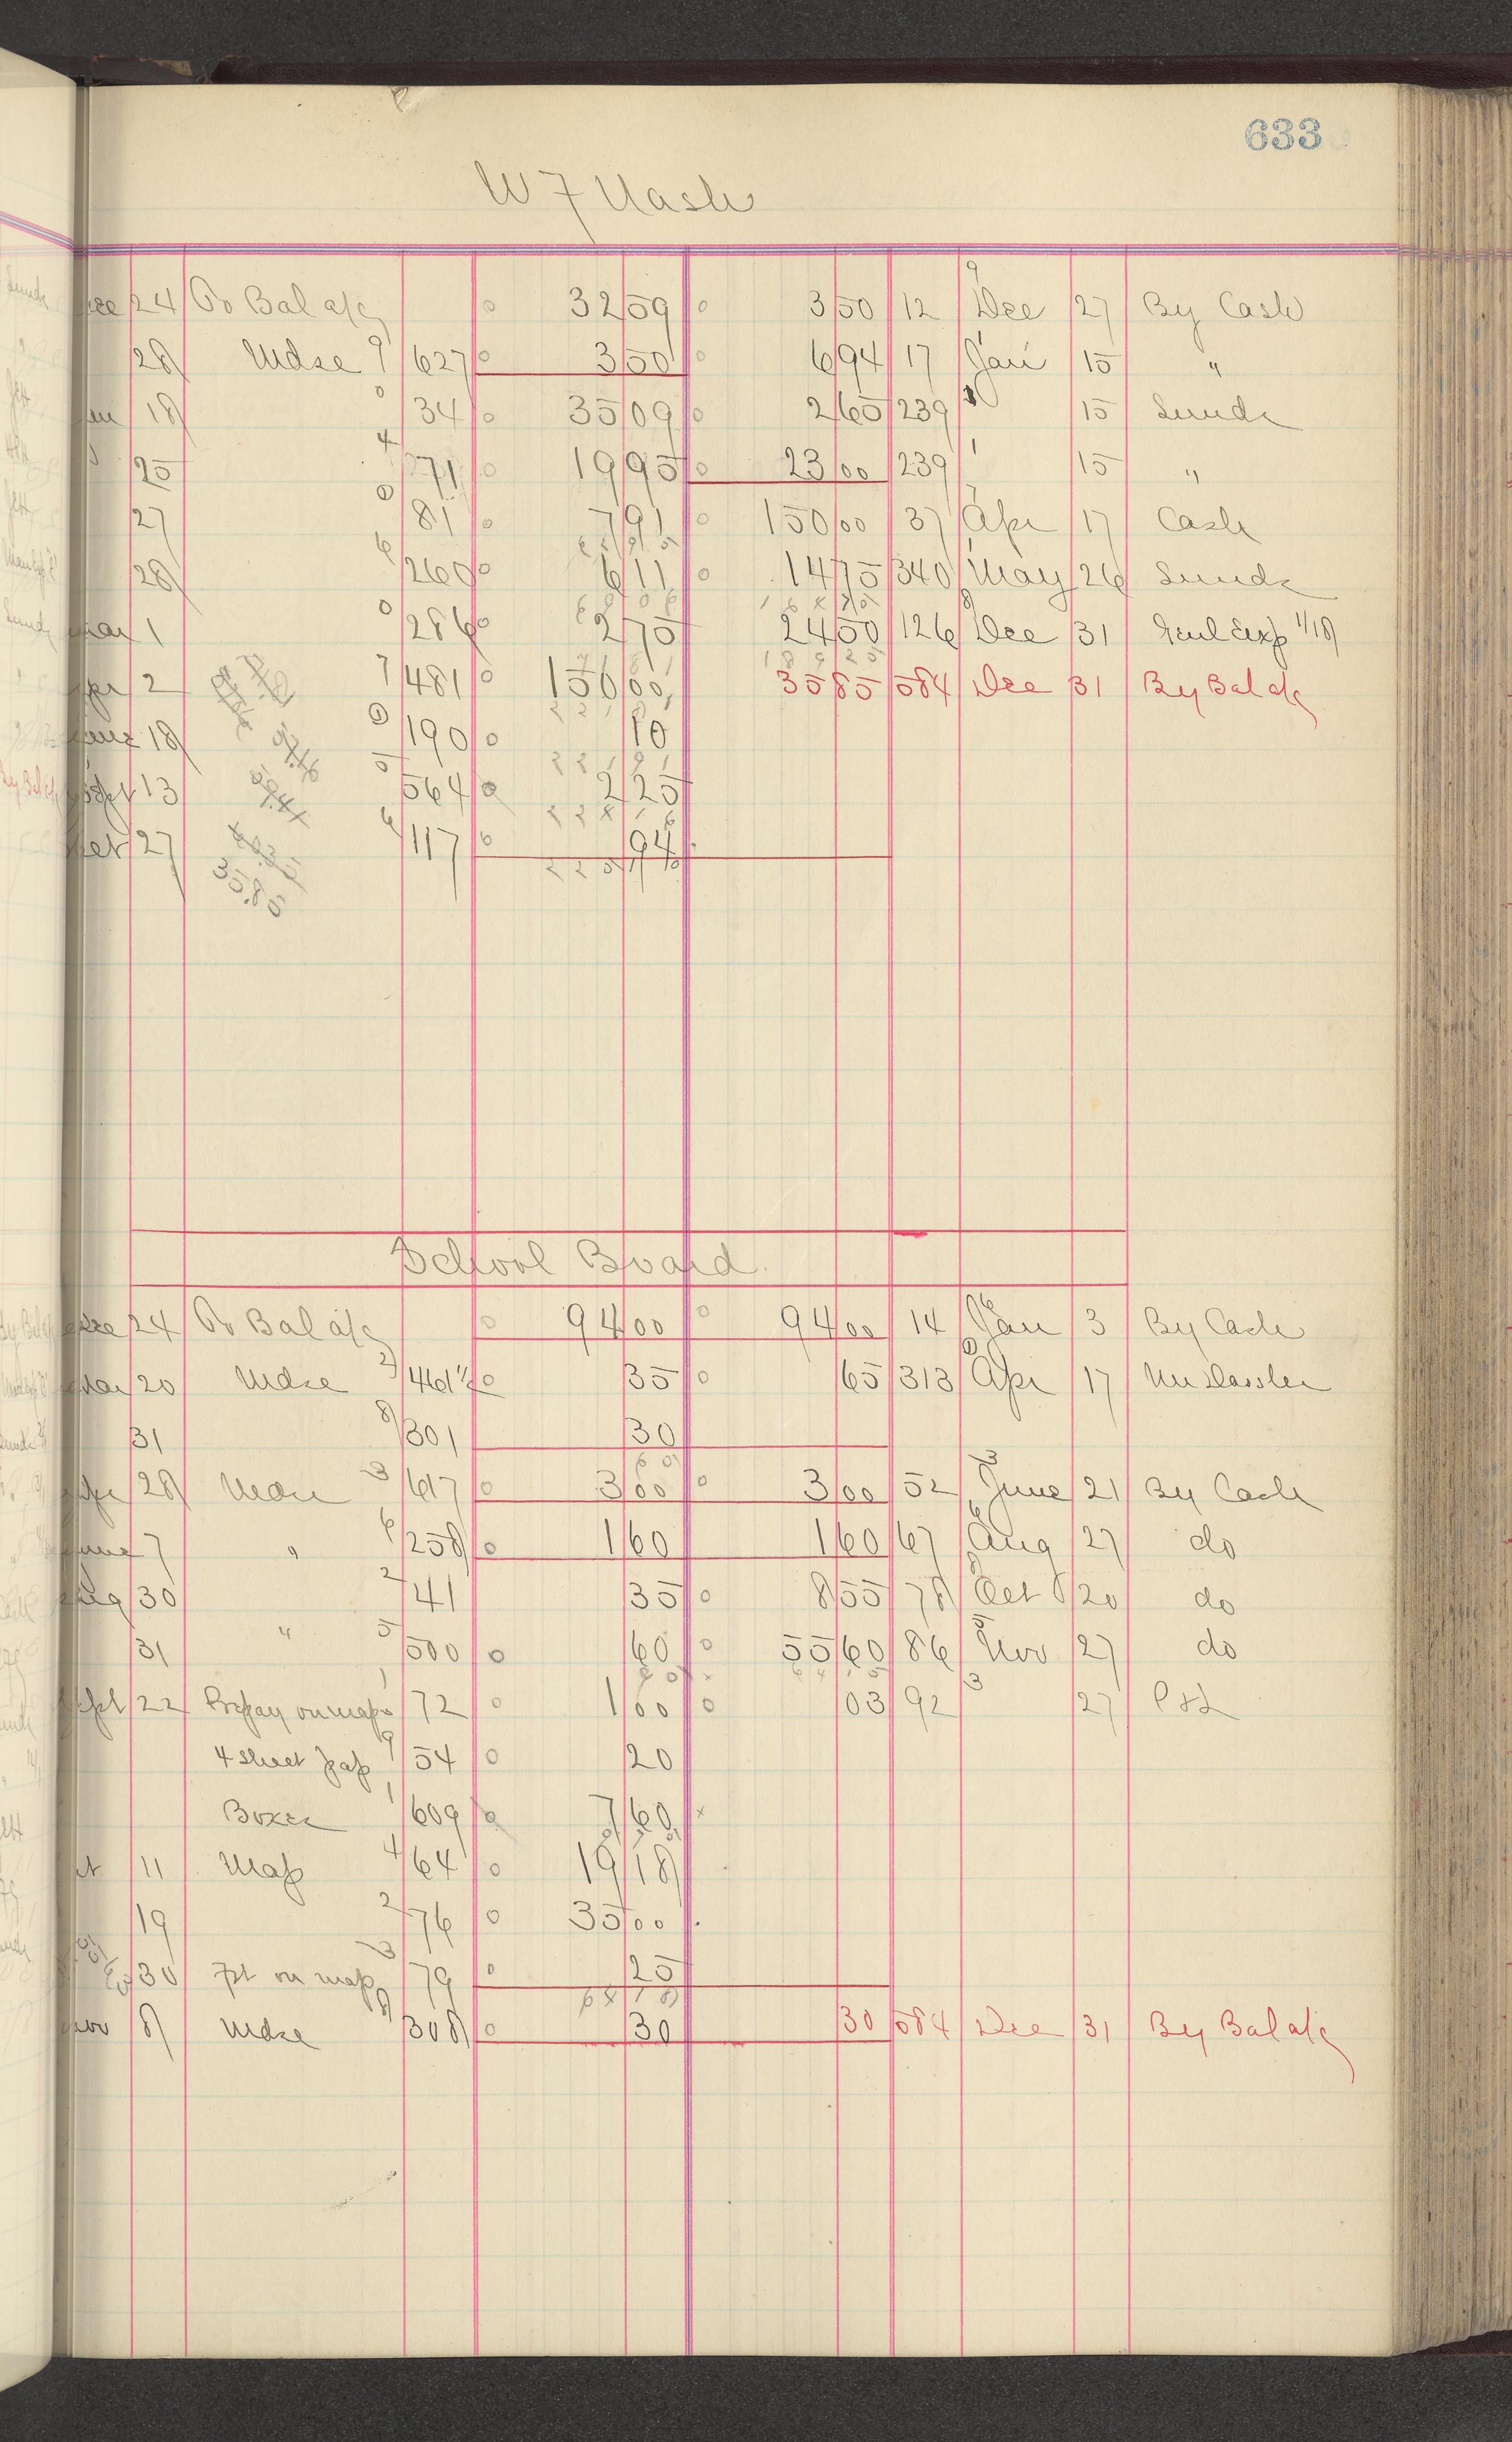 633
W F Nash
Dec 24 To Bal a/c 0 32 59 0 3 50 12 Dec 27 By Cash
28 Mdse 9 627 0 3 50 0 6 94 17 Jan 15 "
Jan 18 0 34 0 35 09 0 2 65 239 15 Sunds
25 4 71 0 19 95 0 23 00 239 15 "
27 0 81 0 7 91 0 150 00 37 Apr 17 Cash
28 6 260 0 6 11 0 14 75 340 May 26 Sunds
Mar 1 0 286 0 2 75 24 50 126 Dec 31 Genl Exp 1/18
Apr 2 7 481 0 150 00 35 85 584 Dec 31 By Bal a/c
June 18 0 190 0 10
Sept 13 5 564 0 2 25
Oct 27 6 117 0 94
35.85
School Board
Dec 24 To Bal a/c 0 94 00 0 94 00 14 Jan 3 By Cash
Mar 20 Mdse 2 461½ 0 35 0 65 313 Apr 17
31 8 301 30
Apr 28 Mdse 3 617 0 3 00 0 3 00 52 June 21 By Cash
June 7 " 6 258 0 1 60 1 60 67 Aug 27 do
Aug 30 2 41 35 0 8 55 78 Oct 20 do
31 " 5 500 0 60 0 55 60 86 Nov 27 do
Sept 22 Prepay on maps 1 72 0 1 00 0 03 92 3 27 P&L
4 sheet pap 9 54 0 20
Boxes 1 609 0 7 60
Oct 11 Map 4 64 0 19 18
19 2 76 0 35 00
30 Frt on map 3 79 0 25
Nov 8 Mdse 9 308 0 30 30 584 Dec 31 By Bal a/c